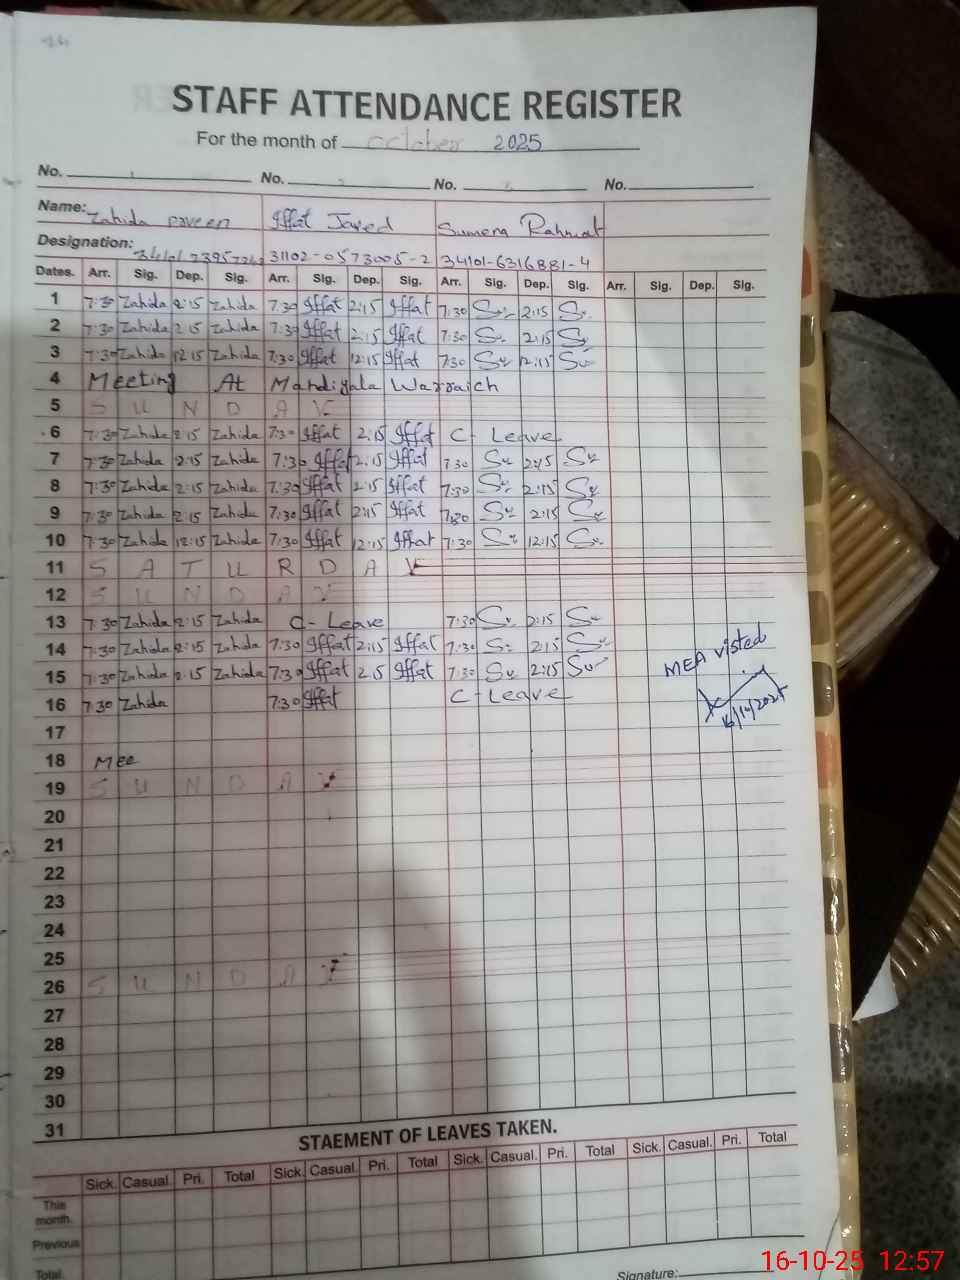 STAFF ATTENDANCE REGISTER
For the month of october 2025
No. 1 No. 2 No. No.
Name: Zahida Parveen Iffat Javed Sumera Rahmat
Designation: 31102-0573005-2 34101-6316881-4
Dates. Arr. Sig. Dep. Sig. Arr. Sig. Dep. Sig. Arr. Sig. Dep. Sig. Arr. Sig. Dep. Sig.
1 7:30 Zahida 2:15 Zahida 7:30 Iffat 2:15 Iffat 7:30 Su 2:15 Su
2 7:30 Zahida 2:15 Zahida 7:30 Iffat 2:15 Iffat 7:30 Su 2:15 Su
3 7:30 Zahida 12:15 Zahida 7:30 Iffat 12:15 Iffat 7:30 Su 12:15 Su
4 Meeting At Mandiyala Warraich
5 S U N D A Y
6 7:30 Zahida 2:15 Zahida 7:30 Iffat 2:15 Iffat C- Leave
7 7:30 Zahida 2:15 Zahida 7:30 Iffat 2:15 Iffat 7:30 Su 2:15 Su
8 7:30 Zahida 2:15 Zahida 7:30 Iffat 2:15 Iffat 7:30 Su 2:15 Su
9 7:30 Zahida 2:15 Zahida 7:30 Iffat 2:15 Iffat 7:30 Su 2:15 Su
10 7:30 Zahida 12:15 Zahida 7:30 Iffat 12:15 Iffat 7:30 Su 12:15 Su
11 S A T U R D A Y
12 S U N D A Y
13 7:30 Zahida 2:15 Zahida C- Leave 7:30 Su 2:15 Su
14 7:30 Zahida 2:15 Zahida 7:30 Iffat 2:15 Iffat 7:30 Su 2:15 Su
15 7:30 Zahida 2:15 Zahida 7:30 Iffat 2 5 Iffat 7:30 Su 2:15 Su
MEA visted
16 7:30 Zahida 7:30 Iffat C-Leave
16/10/2025
17
18 Mee
19 S U N D A Y
20
21
22
23
24
25
26 S U N D A Y
27
28
29
30
31
STAEMENT OF LEAVES TAKEN.
Sick. Casual. Pri. Total Sick. Casual. Pri. Total Sick. Casual. Pri. Total Sick. Casual. Pri. Total
This
month.
Previous
Total
Signature:
16-10-25 12:57